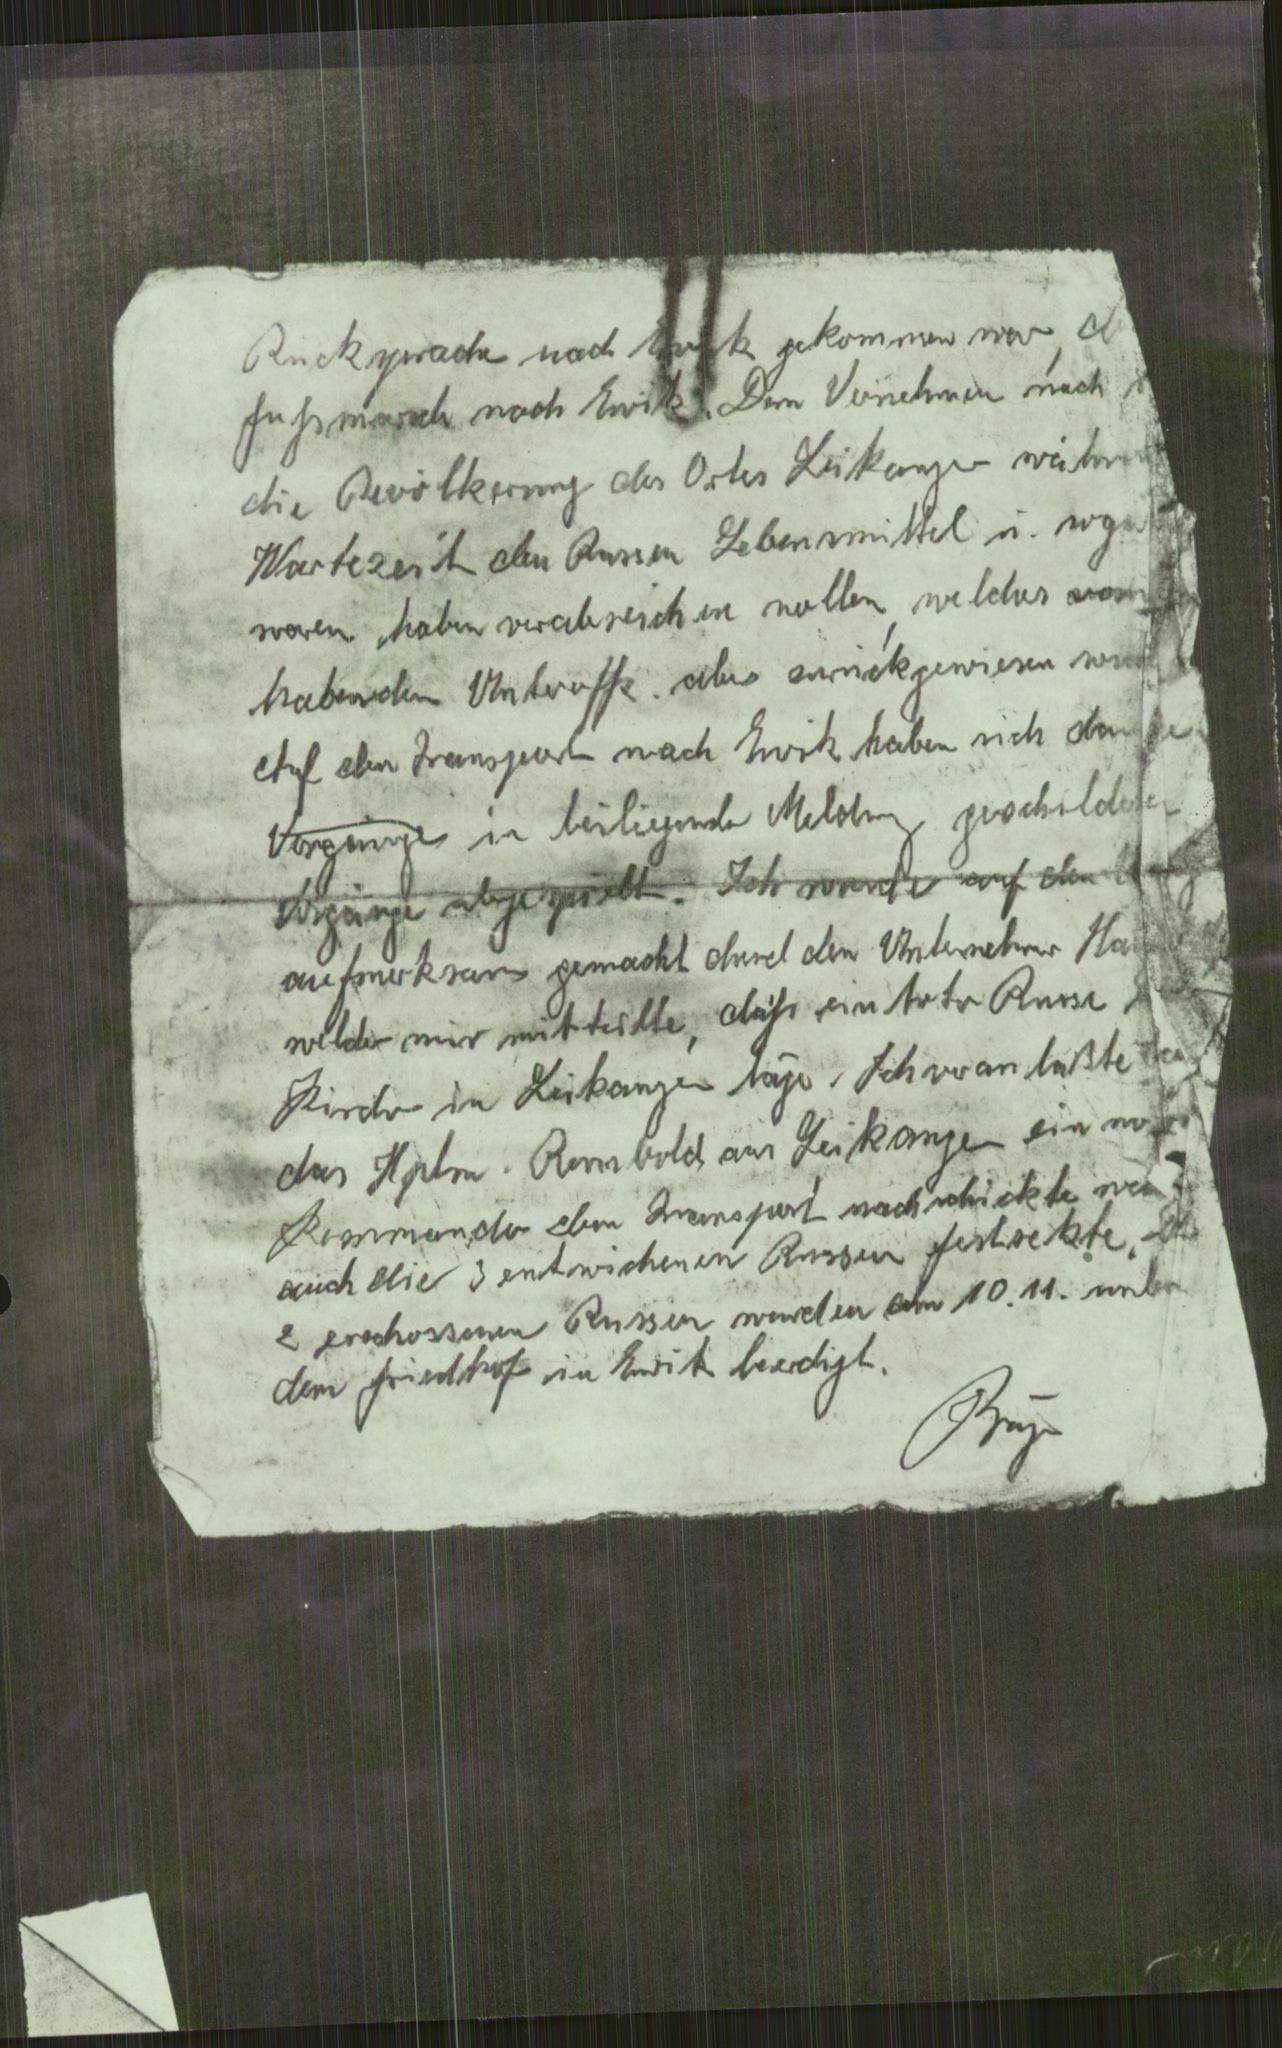 Rücksprache nach Ervik gekommen war,
Fußmarsch nach Ervik. Dem Vernehmen nach
die Bevölkerung des Ortes Leikanger
Wartezeit den Russen Lebensmittel u.
waren haben verabreichen wollen, welches vom
habenden Unteroffz. aber zurückgewiesen
Auf dem Transport nach Ervik haben sich dann
Vorgänge in beiliegende Meldung geschilderten
Vorgänge abgespielt. Ich wurde auf den
aufmerksam gemacht durch den Unternehmer
welcher mir mitteilte, daß ein toter Russe
Kirche in Leikanger läge. Ich veranlaßte
das Hptm. Rombold aus Leikanger ein
Kommando dem Transport nachschickte
auch die 3 entwichenen Russen festsetzte.
2 erschossenen Russen wurden am 10.11.
dem Friedhof in Ervik beerdigt.